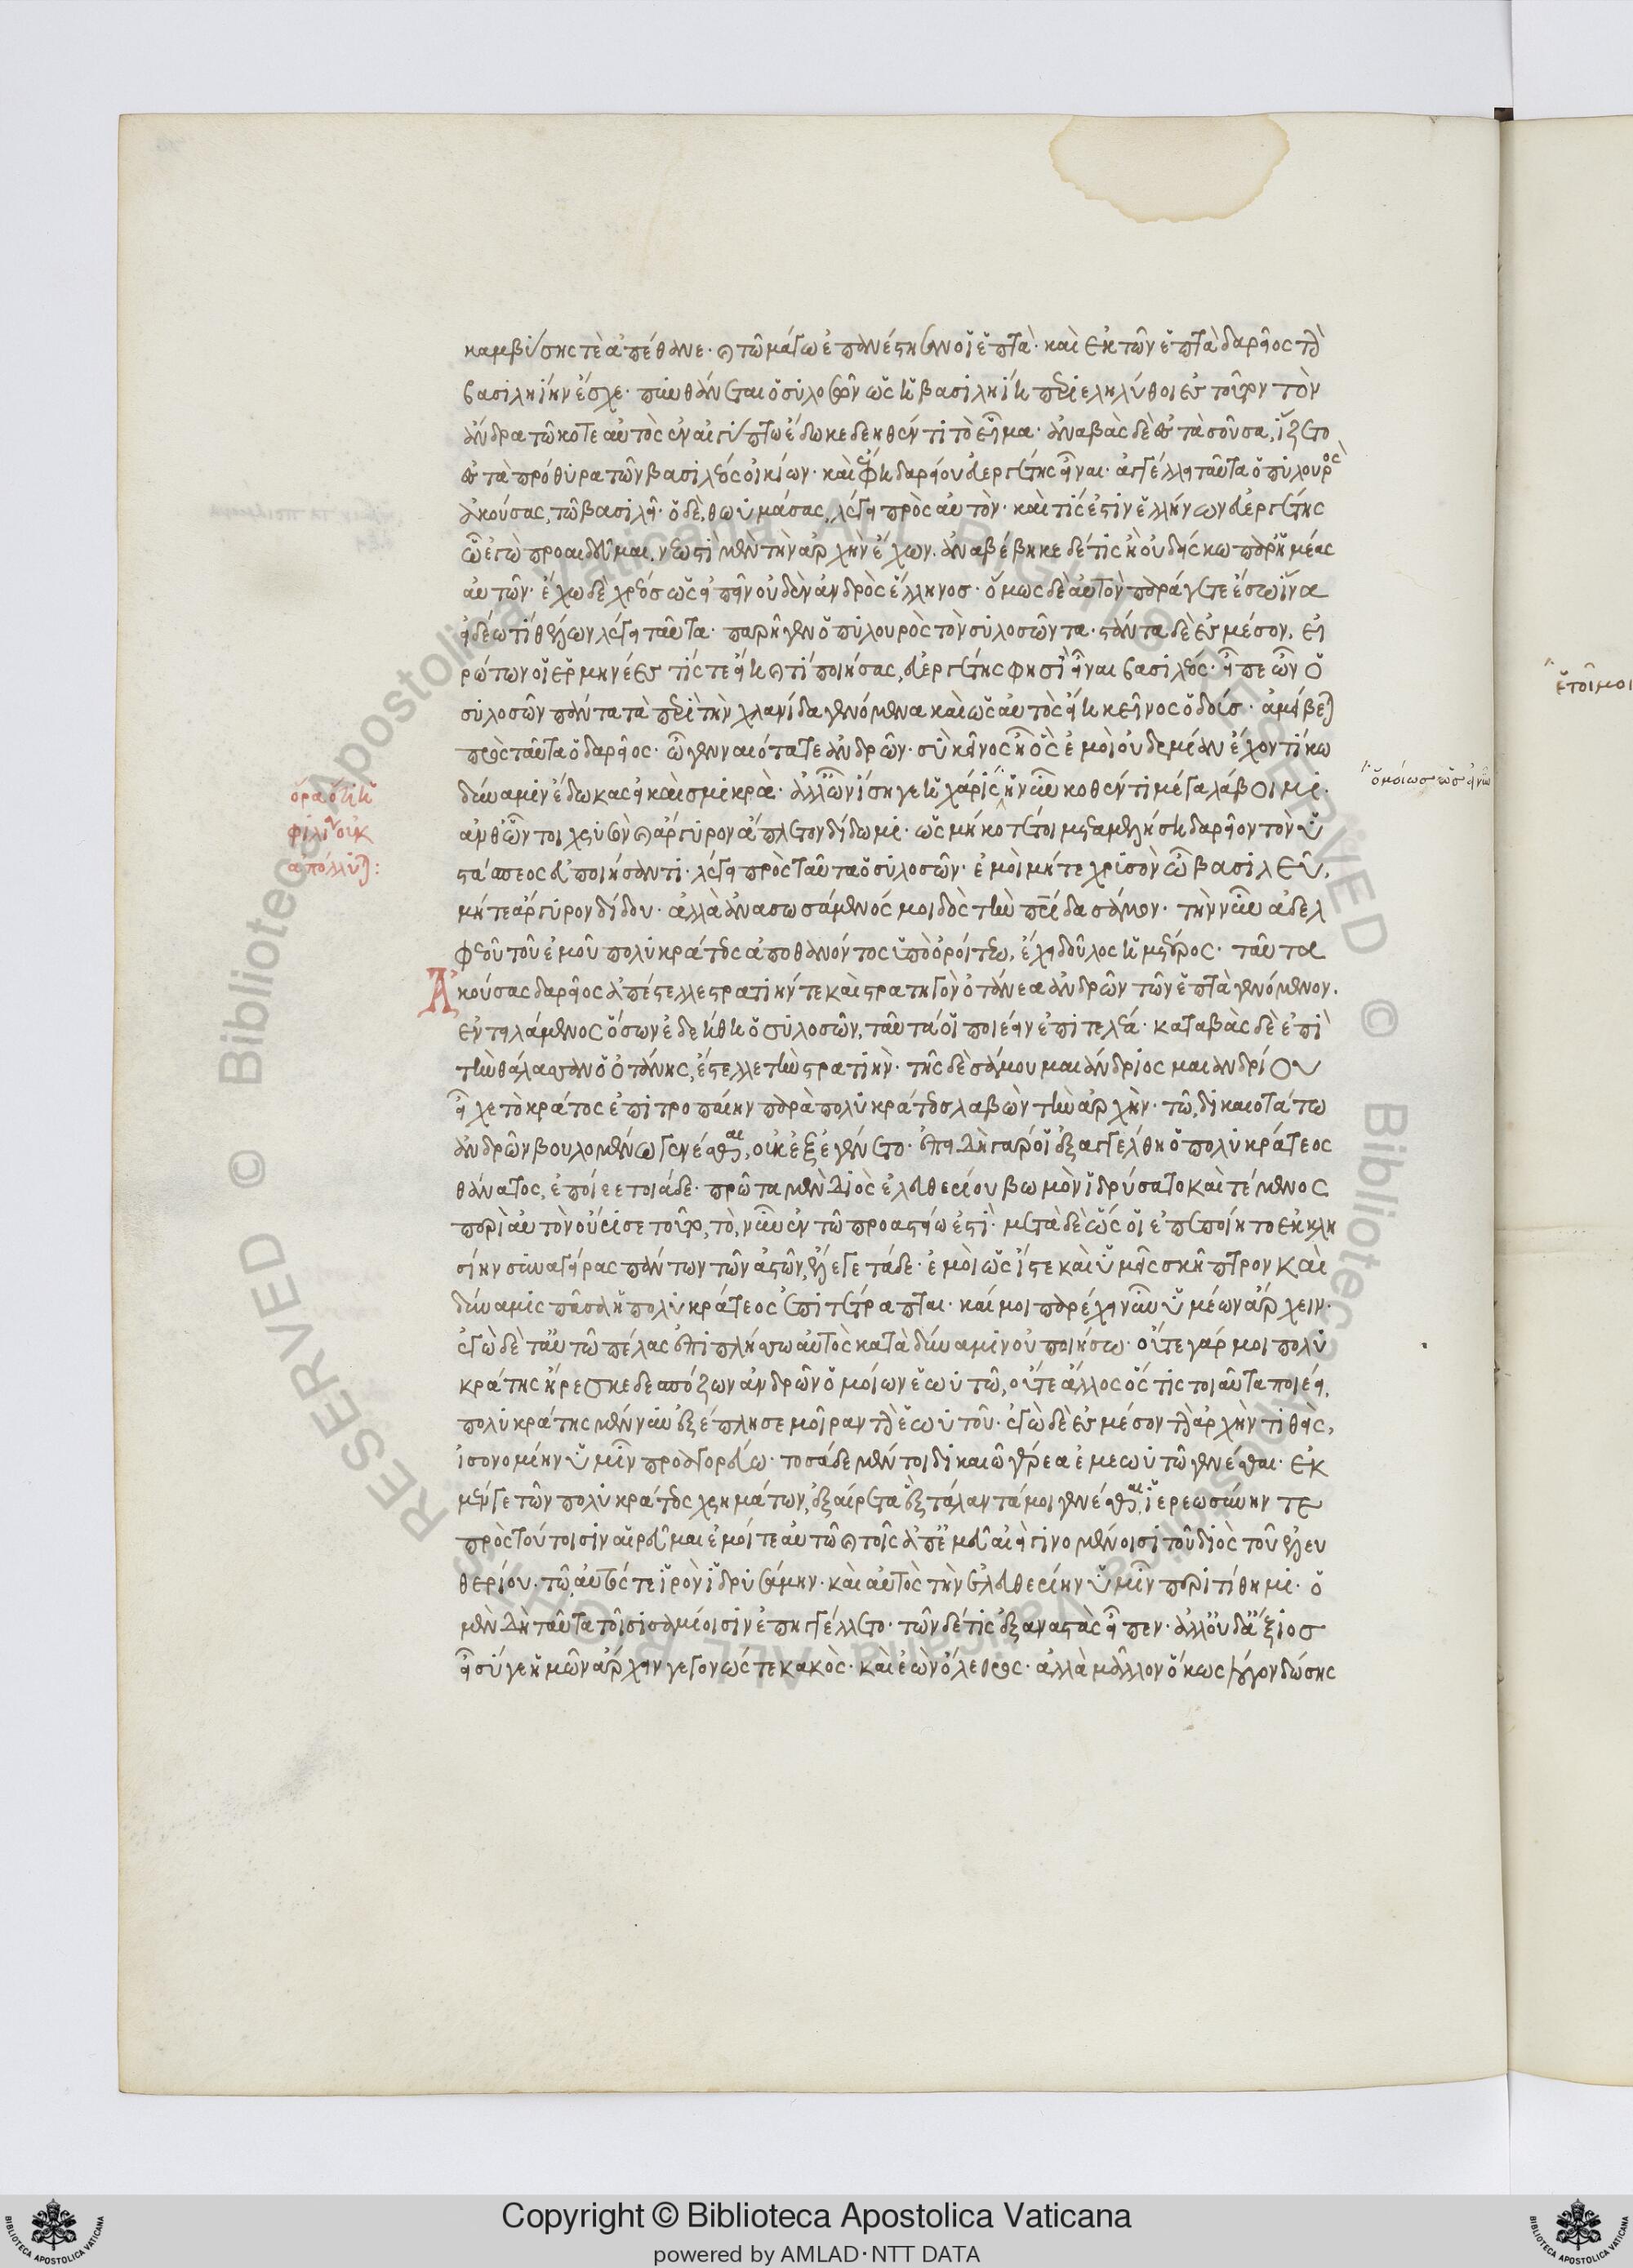 καμβύσης τὲ ἀπέθανε· καὶ τῶ μάγω ἐπανέστησαν οἱ ἑπτά· καὶ ἐκ τῶν ἑπτὰ δαρεῖος τὴν
βασιληίην ἔσχε· πυνθάνεται ὁ συλοσῶν ὡς ἡ βασιληίη περιεληλύθοι ἐς τοῦτον τὸν
ἄνδρα τῶ κοτε αὐτὸς ἐν αἰγύπτω ἔδωκε δεηθέντι τὸ εἷμα· ἀναβὰς δὲ ἐς τὰ σοῦσα, ἵζετο
ἐς τὰ πρόθυρα τῶν βασιλέος οἰκίων· καὶ ἔφη δαρείου εὐεργέτης εἶναι· ἀγγέλλει ταῦτα ὁ πυλουρὸς
ἀκούσας, τῶ βασιλεῖ· ὁ δὲ, θωυμάσας, λέγει πρὸς αὐτὸν· καὶ τίς ἐστιν ἑλλήνων εὐεργέτης
ὧ ἐγὼ προαιδεῦμαι, νεωστὶ μὲν τὴν ἀρχὴν ἔχων. ἀναβέβηκε δέ τις ἢ οὐδείς κω παρ ἡμέας
αὐτῶν· ἔχω δὲ χρέος ὡς εἰπεῖν οὐδὲν ἀνδρὸς ἕλληνος· ὅμως δὲ αὐτὸν παράγετε ἔσω ἵνα
εἰδέω τί θέλων λέγει ταῦτα· παρῆγεν ὁ πυλουρὸς τὸν συλοσῶντα· στάντα δὲ ἐς μέσον, εἰ
ρώτων οἱ ἑρμηνέες τίς τε εἴη καὶ τί ποιήσας, εὐεργέτης φησὶ εἶναι βασιλέος· εἶπε ὦν ὁ
συλοσῶν πάντα τὰ περὶ τὴν χλανίδα γενόμενα καὶ ὡς αὐτὸς εἴη κεῖνος ὁ δούς· ἀμείβεται
πρὸς ταῦτα ὁ δαρεῖος· ὦ γενναιότατε ἀνδρῶν· σὺ κεῖνος εἶ ὃς ἐμοὶ οὐδεμίαν ἔχοντί κω
δύναμιν ἔδωκας εἰ καὶ σμικρά· ἀλλ' ὦν ἴση γε ἡ χάρις ἢν εἰ νῦν κοθέν τι μέγα λάβοιμι·
ἀνθ' ὧν τοι χρυσὸν καὶ ἄργυρον ἄπλετον δίδωμι· ὡς μή κοτέ τοι μεταμελήση δαρεῖον τὸν ὑ
στάσπεος εὖ ποιήσαντι· λέγει πρὸς ταῦτα ὁ συλοσῶν· ἐμοὶ μήτε χρυσὸν ὦ βασιλεῦ,
μήτε ἄργυρον δίδου· ἀλλὰ ἀνασωσάμενός μοι δὸς τὴν πατρίδα σάμον· τὴν νῦν ἀδελ
φεοῦ τοῦ ἐμοῦ πολυκράτεος ἀποθανόντος ὑπὸ ὀροίτεω, ἔχει δοῦλος ἡμέτερος· ταῦτα
Ἀκούσας δαρεῖος ἀπέστελλε στρατιήν τε καὶ στρατηγὸν ὀτάνεα ἀνδρῶν τῶν ἑπτὰ γενόμενον.
ἐντειλάμενος ὅσων ἐδεήθη ὁ συλοσῶν, ταῦτά οἱ ποιέειν ἐπιτελέα· καταβὰς δὲ ἐπὶ
τὴν θάλασσαν ὁ ὀτάνης, ἔστελλε τὴν στρατιήν· τῆς δὲ σάμου μαιάνδριος μαιανδρίου
εἶχε τὸ κράτος ἐπιτροπαίην παρὰ πολυκράτεος λαβὼν τὴν ἀρχὴν· τῶ, δικαιοτάτω
ἀνδρῶν βουλομένω γενέσθαι, οὐκ ἐξεγένετο· ἐπειδὴ γάρ οἱ ἐξαγγέλθη ὁ πολυκράτεος
θάνατος, ἐποίεε τοιάδε· πρῶτα μὲν Διὸς ἐλευθερίου βωμὸν ἱδρύσατο καὶ τέμενος
περὶ αὐτὸν οὔρισε τοῦτο, τὸ, νῦν ἐν τῶ προαστείω ἐστὶ· μετὰ δὲ ὥς οἱ ἐπεποίητο ἐκκλη
σίην συναγείρας πάντων τῶν ἀστῶν, ἔλεγε τάδε· ἐμοὶ ὡς ἴστε καὶ ὑμεῖς σκῆπτρον καὶ
δύναμις πᾶσα ἡ πολυκράτεος ἐπιτέτραπται· καί μοι παρέχει νῦν ὑμέων ἄρχειν·
ἐγὼ δὲ τὰ τῶ πέλας ἐπιπλήσσω αὐτὸς κατὰ δύναμιν οὐ ποιήσω· οὔτε γάρ μοι πολυ
κράτης ἤρεσκε δεσπόζων ἀνδρῶν ὁμοίων ἑωυτῶ, οὔτε ἄλλος ὅστις τοιαῦτα ποιέει,
πολυκράτης μέν νυν ἐξέπλησε μοῖραν τὴν ἑωυτοῦ· ἐγὼ δὲ ἐς μέσον τὴν ἀρχὴν τιθεὶς,
ἰσονομίην ὑμῖν προαγορεύω· τοσάδε μέντοι δικαιῶ γέρεα ἐμεωυτῶ γενέσθαι· ἐκ
μέν γε τῶν πολυκράτεος χρημάτων, ἐξαίρετα ἓξ τάλαντά μοι γενέσθαι, ἱερεωσύνην τε
πρὸς τούτοισιν αἱρεῦμαι ἐμοί τε αὐτῶ καὶ τοῖς ἀπ' ἐμεῦ αἰεὶ γινομένοισι τοῦ διὸς τοῦ ἐλευ
θερίου· τῶ, αὐτός τε ἱρὸν ἱδρυσάμην· καὶ αὐτὸς τὴν ἐλευθερίην ὑμῖν περιτίθημι· ὁ
μὲν Δὴ ταῦτα τοῖσι σαμίοισιν ἐπηγγέλλετο· τῶν δέ τις ἐξαναστὰς εἶπεν· ἀλλ' οὐδ' ἄξιος
εἶ σύ γε ἡμῶν ἄρχειν γεγονώς τε κακὸς· καὶ ἐὼν ὄλεθρος· ἀλλὰ μᾶλλον ὅκως λόγον δώσεις
ὅρα ὅτι ἡ
φιλία οὐκ
ἀπόλλυται:
ὁμοίως ὡς εἰ νῦν
ἕτοιμοι
Copyright © Biblioteca Apostolica Vaticana
powered by AMLAD·NTT DATA